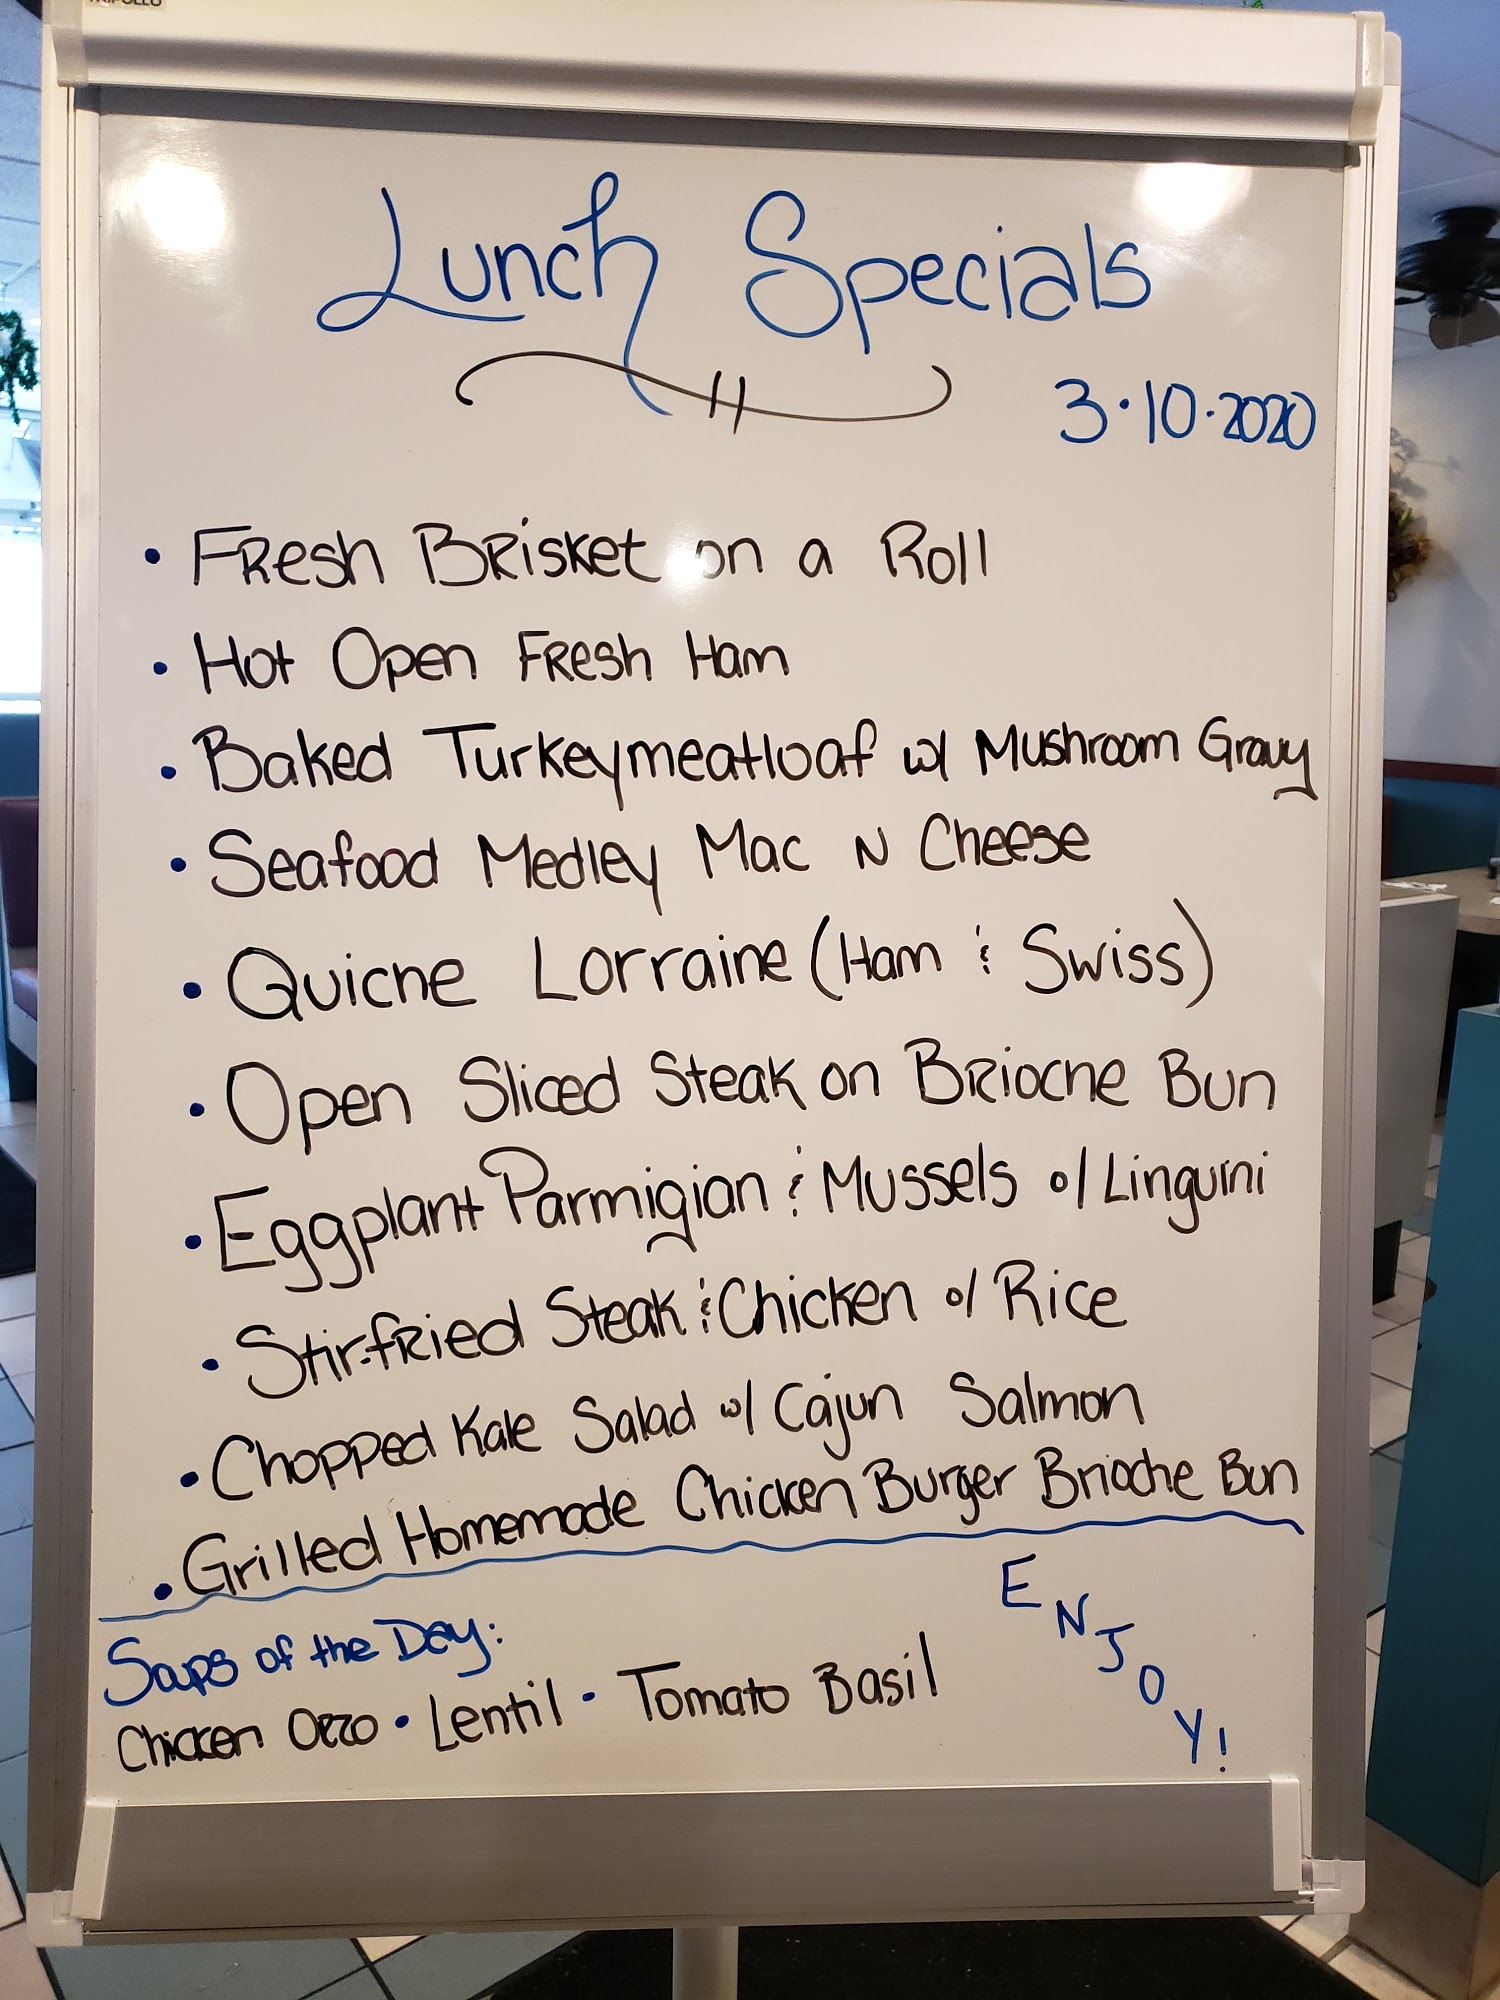 Lunch Specials
3.10.2020
• Fresh Brisket on a Roll
• Hot Open Fresh Ham
• Baked Turkeymeatloaf w/ Mushroom Gravy
• Seafood Medley Mac N Cheese
• Quiche Lorraine (Ham & Swiss)
• Open Sliced Steak on Brioche Bun
• Eggplant Parmigian & Mussels o/ Linguini
• Stir-fried Steak & Chicken o/ Rice
• Chopped Kale Salad w/ Cajun Salmon
• Grilled Homemade Chicken Burger Brioche Bun
Soups of the Day:
Chicken Orzo • Lentil • Tomato Basil
ENJOY!